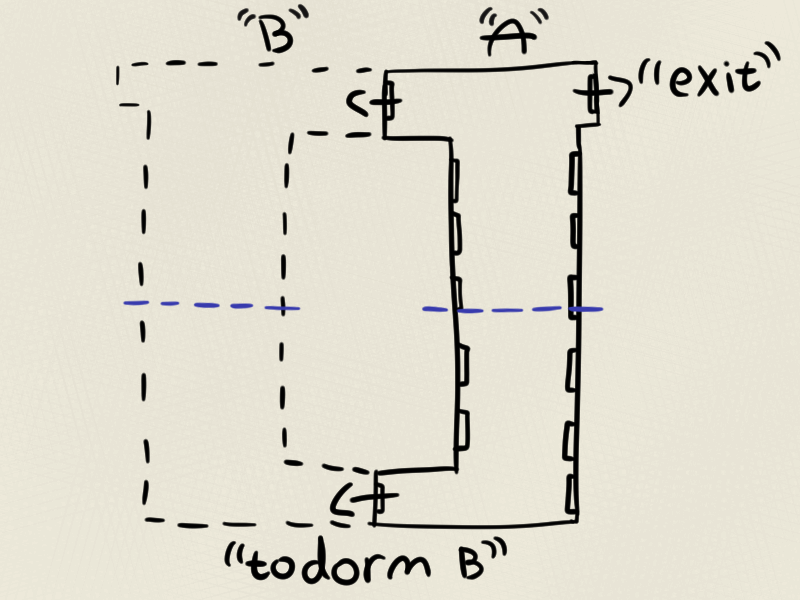 "B"
"A"
"exit"
"todorm B"